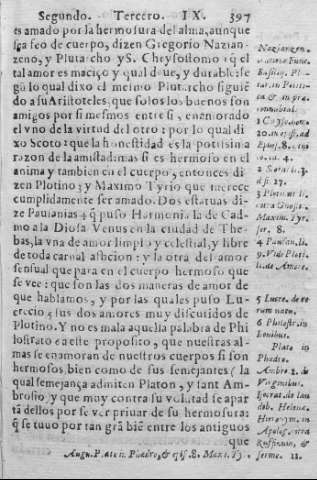 Segundo. Tercero. IX. 397
es amado por la hermosura del alma, aunque
sea feo de cuerpo, dizen Gregorio Nazian-
zeno, y Plutarcho y S. Chrysostomo: q̃ el
tal amor es maciço, y qual dize, y durable: se
gũ lo qual dixo el mesmo Plutarcho siguiẽ
do a su Aristoteles, que solos los buenos son
amigos por si mesmos entre si, enamorado
el vno de la virtud del otro: por lo qual di
xo Scoto: que la honestidad es la potissima
razon de la amistad: mas si es hermoso en el
anima y tambien en el cuerpo, entonces di
zen Plotino 3 y Maximo Tyrio que merece
cumplidamente ser amado. Dos estatuas di-
ze Pausanias 4 q̃ puso Harmonia la de Cad-
mo a la Diosa Venus en la ciudad de The-
bas, la vna de amor limpio y celestial, y libre
de toda carnal aficion: y la otra del amor
sensual que para en el cuerpo hermoso que
se vee: que son las dos maneras de amor de
que hablamos, y por las quales puso Lu-
crecio 5 sus dos amores muy discutidos de
Plotino. Y no es mala aquella palabra de Phi
lostrato 6 a este proposito, que nuestras al-
mas se enamoran de nuestros cuerpos si son
hermosos, bien como de sus semejantes (la
qual semejança admiten Platon, y sant Am-
brosio) y que muy contra su volũtad se apar
tã dellos por se ver priuar de su hermosura:
q̃ se tuuo por tan grã biẽ entre los antiguos
que
Nazianzen.
Basilij. Plu-
tar. in Politi-
1 Chrysostom.
Ephes. 8.
mo. 4.
2 Scotus. 3.
d. 27.
3 Plotinus li.
Maxim. Tyr.
ser. 8.
4 Pausan. li.
9. Vide Ploti.
li. de Amore.
5 Lucre. de re-
rum natu.
6 Philostr. in
Iconibus.
Plato in
Phædro.
Ambro. 2. de
Virginibus.
Isocrat. de lau
deb. Helenæ.
Hieronym. in
Apolog. contra
Ruffinum, &
August. Plato in Phædro, & Maxi. Ty. serme. 11.